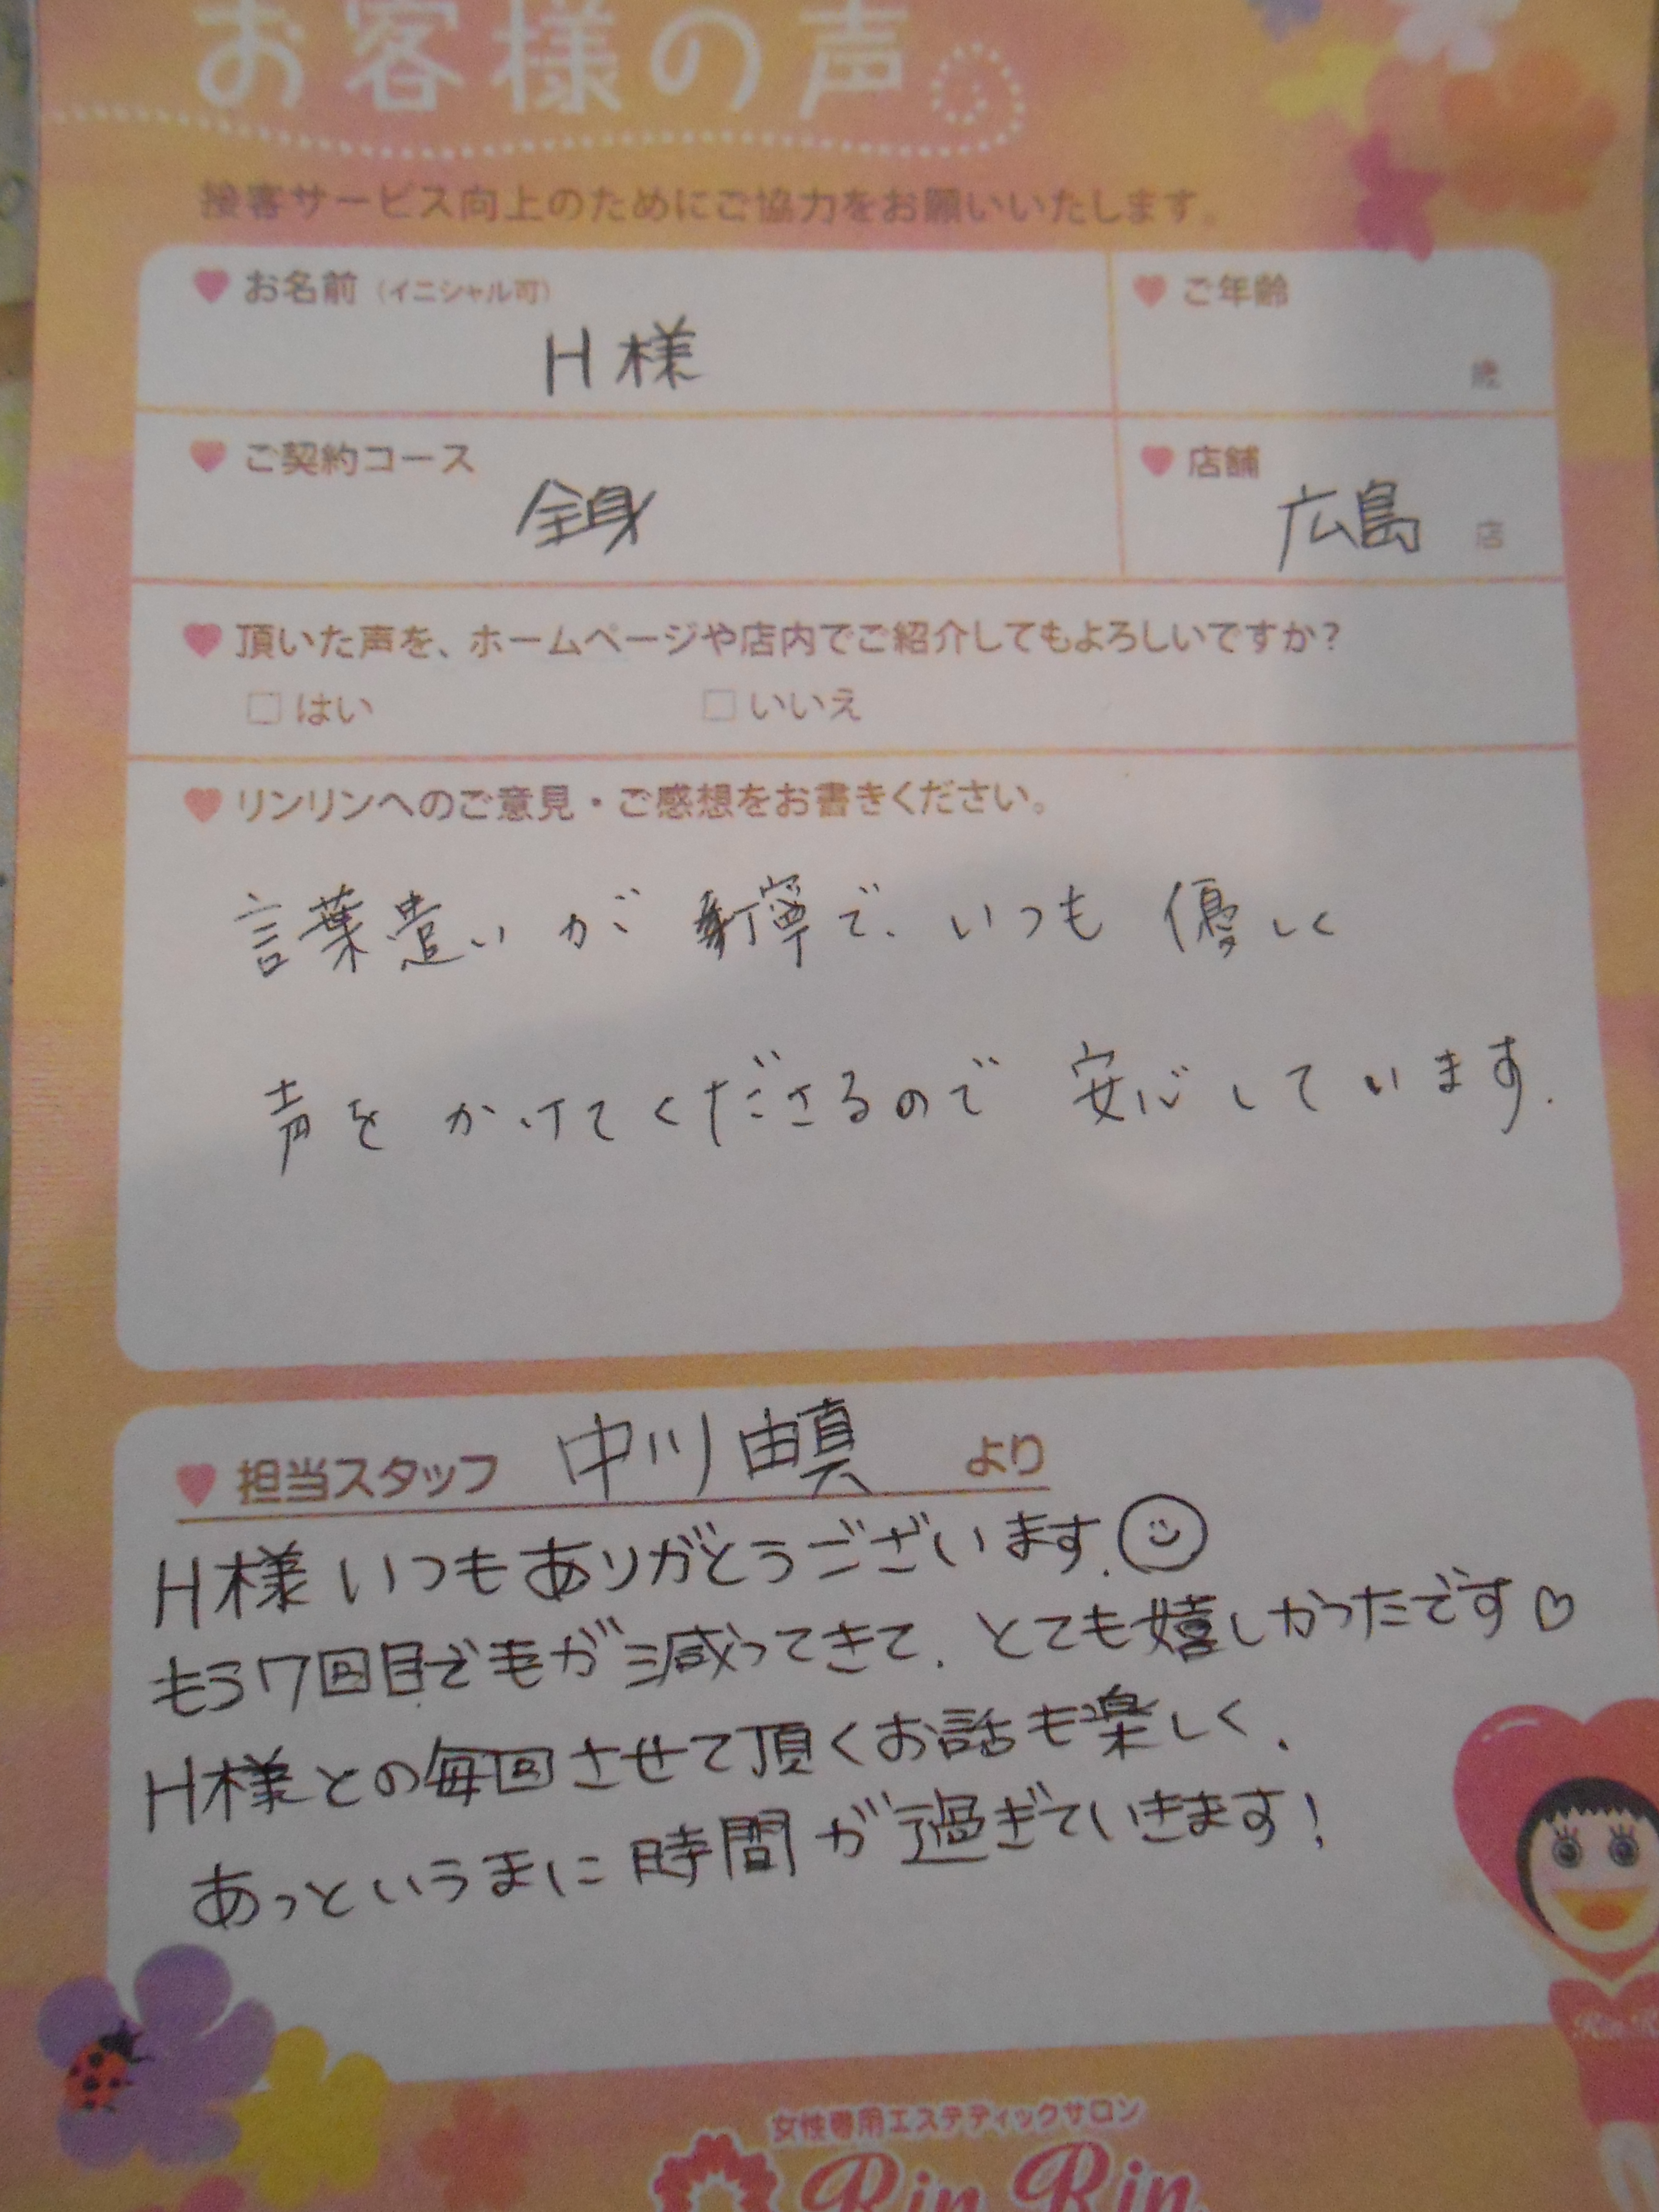 お客様の声
接客サービス向上のためにご協力をお願いいたします。
お名前（イニシャル可）
H様
ご年齢
歳
ご契約コース
全身
店舗
広島 店
頂いた声を、ホームページや店内でご紹介してもよろしいですか？
はい いいえ
リンリンへのご意見・ご感想をお書きください。
言葉遣いが 丁寧で、いつも 優しく
声を かけてくださるので 安心しています.
担当スタッフ 中川 由真 より
H様 いつもありがとうございます.
もう7回目で毛が減ってきて、とても嬉しかったです♡
H様との毎回させて頂くお話も楽しく、
あっというまに時間が過ぎていきます！
女性専用エステティックサロン
Rin Rin